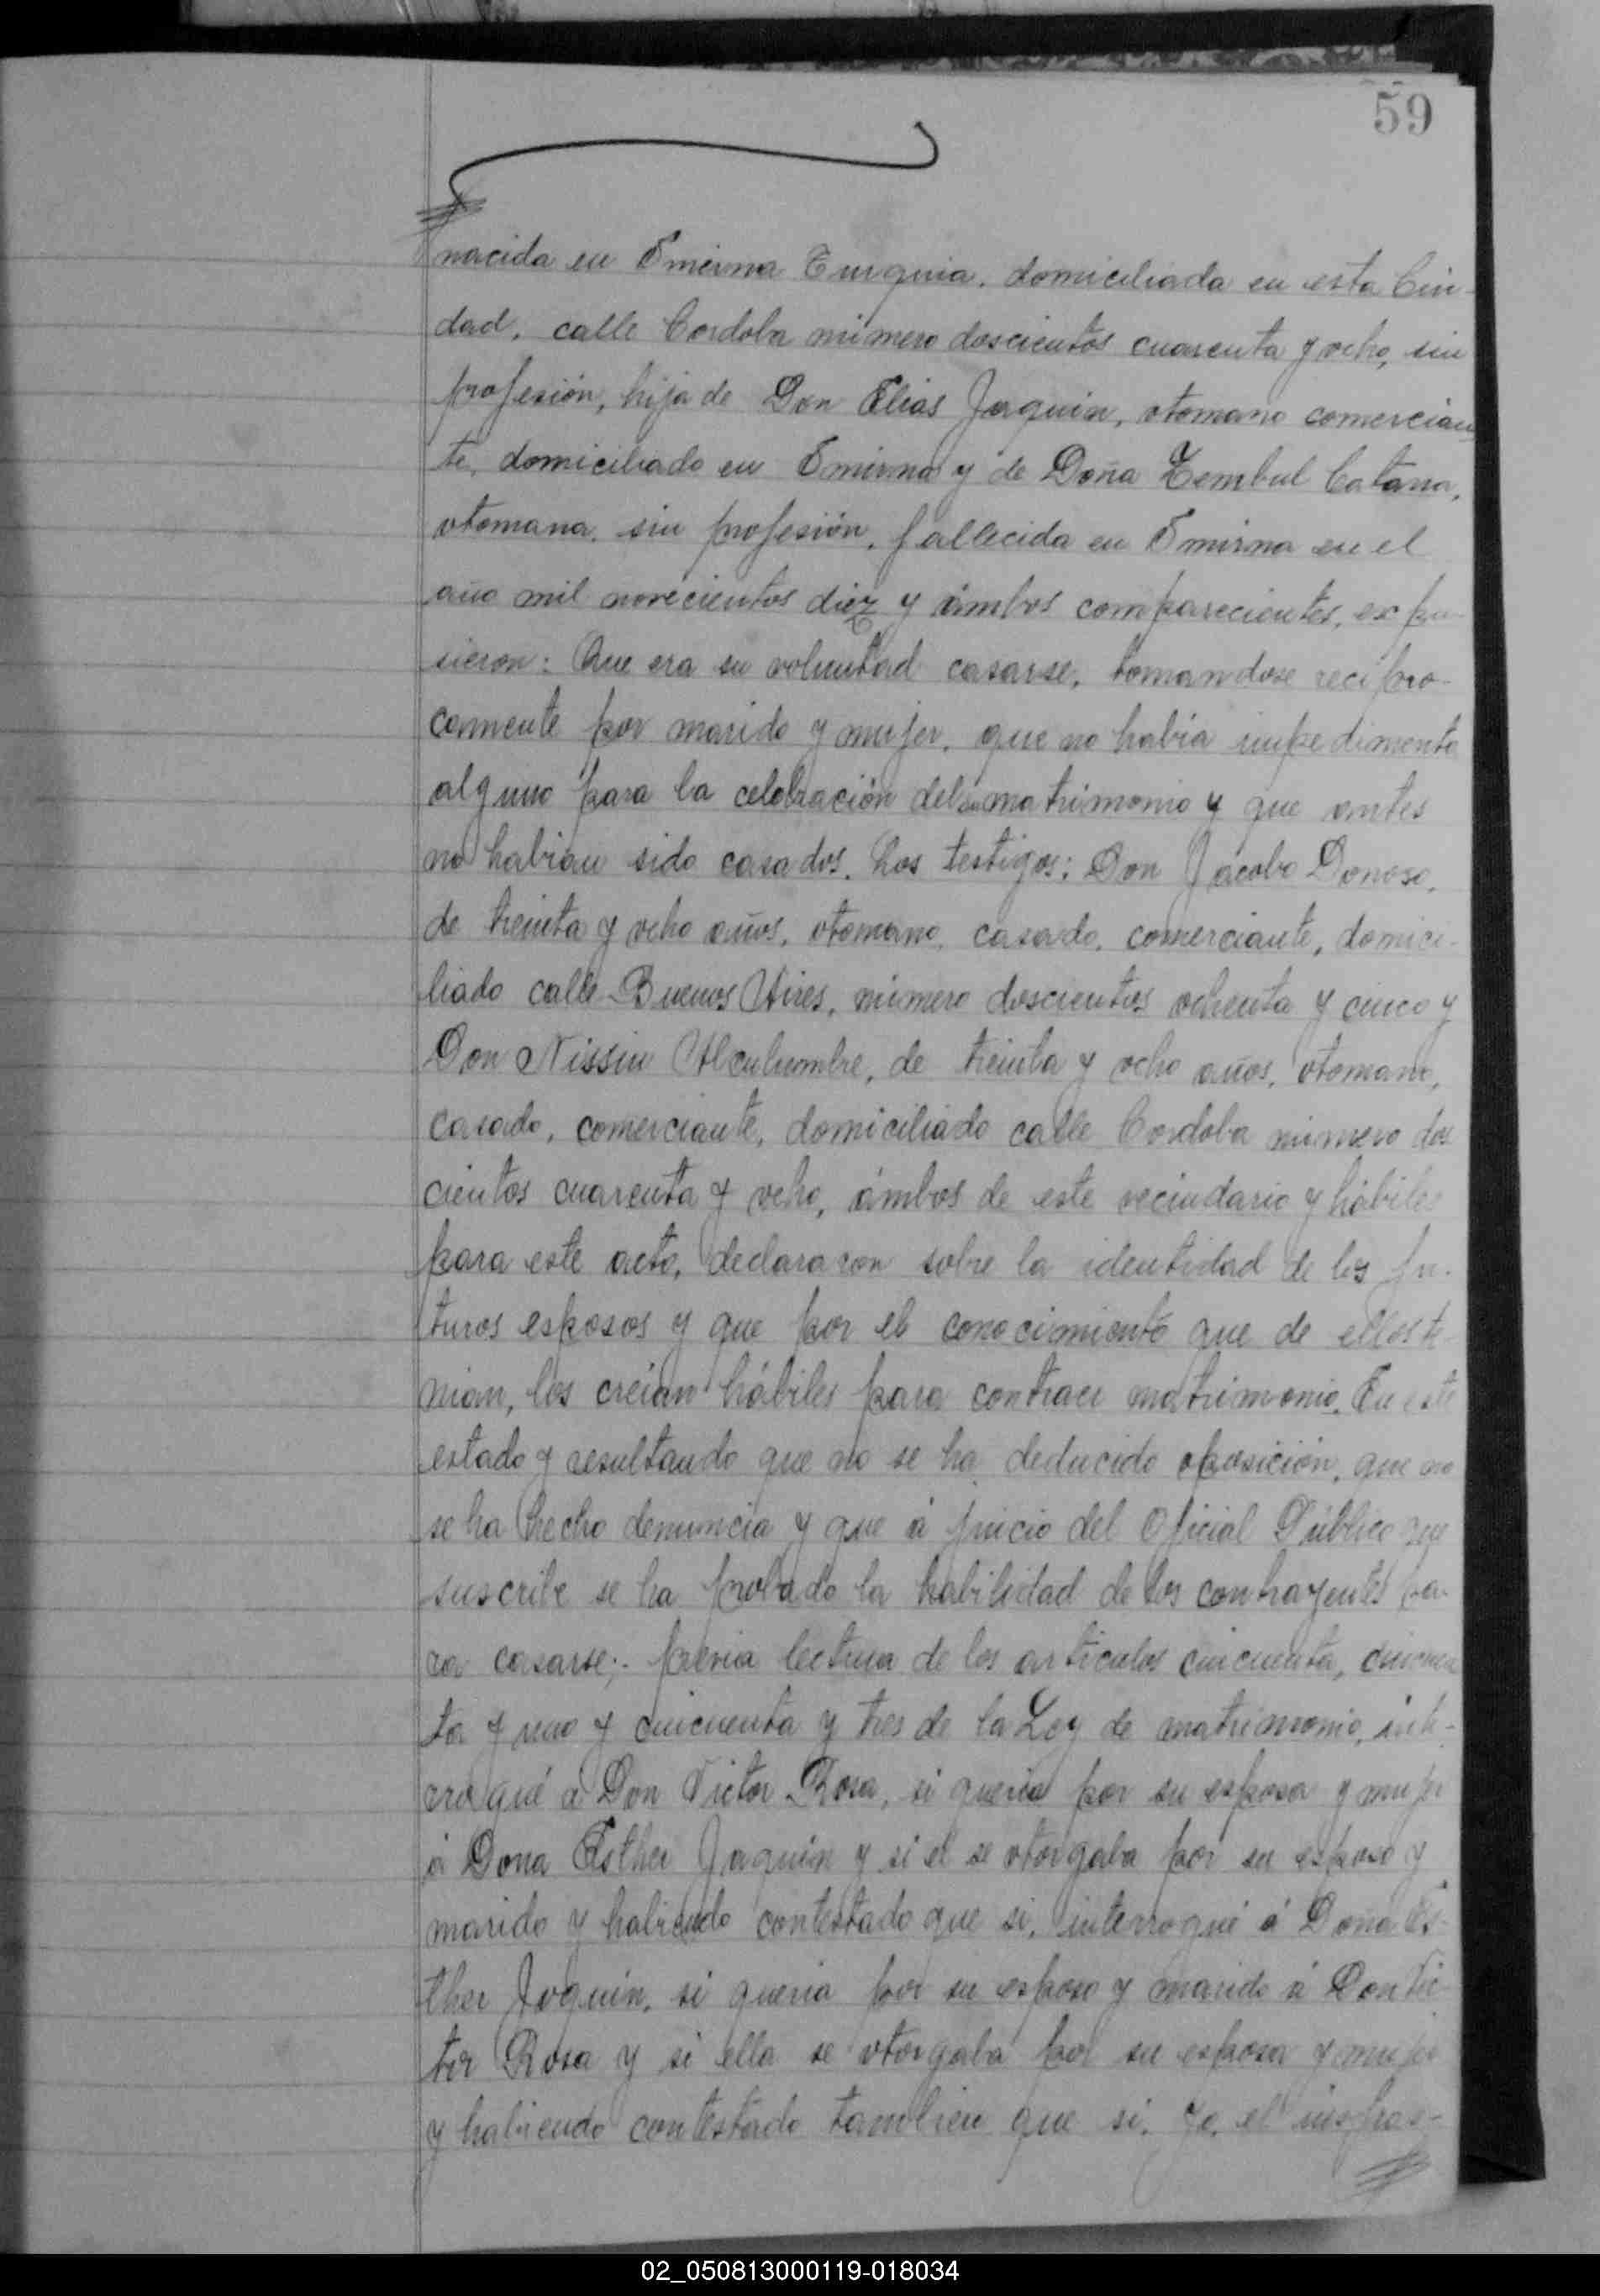 59
nacida en Smirna Turquia, domiciliada en esta Ciu-
dad, calle Cordoba número doscientos cuarenta y ocho, sin
profesión, hija de Don Elias Jaquin, otomano comercian
te, domiciliado en Smirna y de Doña Zembul Catana,
otomana, sin profesión, fallecida en Smirna en el
año mil novecientos diez y ámbos comparecientes, expu-
sieron: Que era su voluntad casarse, tomandose recipro-
camente por marido y mujer, que no habia impedimento
alguno para la celebración del matrimonio y que antes
no habian sido casados. Los testigos: Don Jacobo Donoso,
de treinta y ocho años, otomano, casado, comerciante, domici-
liado calle Buenos Aires, número doscientos ochenta y cinco y
Don Nissin Alculumbre, de treinta y ocho años, otomano,
casado, comerciante, domiciliado calle Cordoba número dos
cientos cuarenta y ocho, ámbos de este vecindario y hábiles
para este acto, declararon sobre la identidad de los fu-
turos esposos y que por el conocimiento que de ellos te-
nian, los creian hábiles para contraer matrimonio. En este
estado y resultando que no se ha deducido oposición, que no
se ha hecho denuncia y que á juicio del Oficial Público que
suscribe se ha probado la habilidad de los contrayentes pa-
ra casarse;- previa lectura de los articulos cincuenta, cincuen
ta y uno y cincuenta y tres de la Ley de matrimonio, inte-
rrogué á Don Victor Rosa, si queria por su esposa y mujer
á Dona Esther Jaquin y si el se otorgaba por su esposo y
marido y habiendo contestado que si, interrogué á Doña Es-
ther Jaquin, si queria por su esposo y marido á Don Vic-
tor Rosa y si ella se otorgaba por su esposa y mujer
y habiendo contestado tambien que si, yo, el infras-
02_050813000119-018034